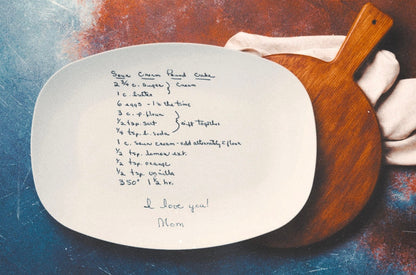 Sour Cream Pound Cake
2 3/4 c. sugar } cream
1 c. butter
6 eggs - 1 @ the time
3 c. p. flour
1/2 tsp. salt } sift together
1/4 tsp. b. soda
1 c. sour cream - add alternately c flour
1/2 tsp. lemon ext.
1/2 tsp. orange
1/2 tsp. vanilla
350° 1 1/2 hr.
I love you!
Mom